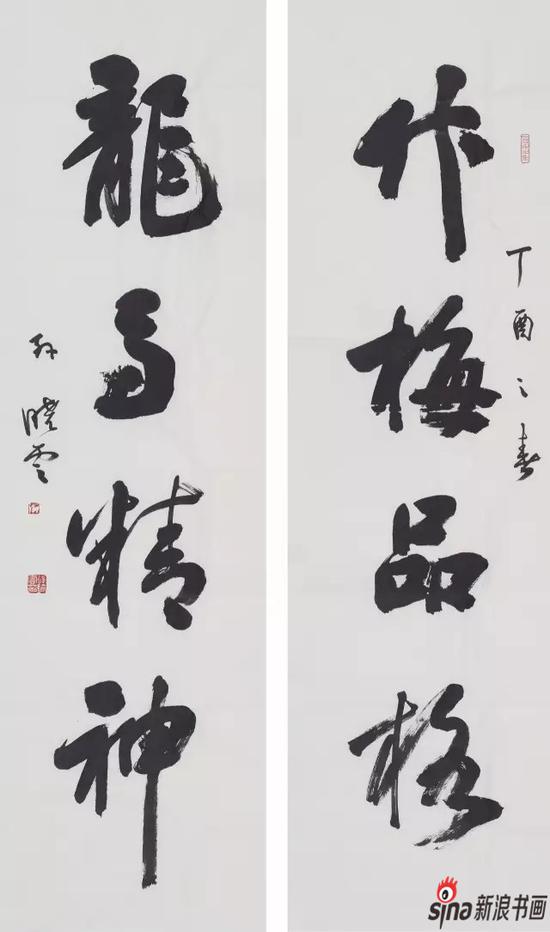 竹梅品格
丁酉之春
龍馬精神
孫曉雲
sina新浪书画